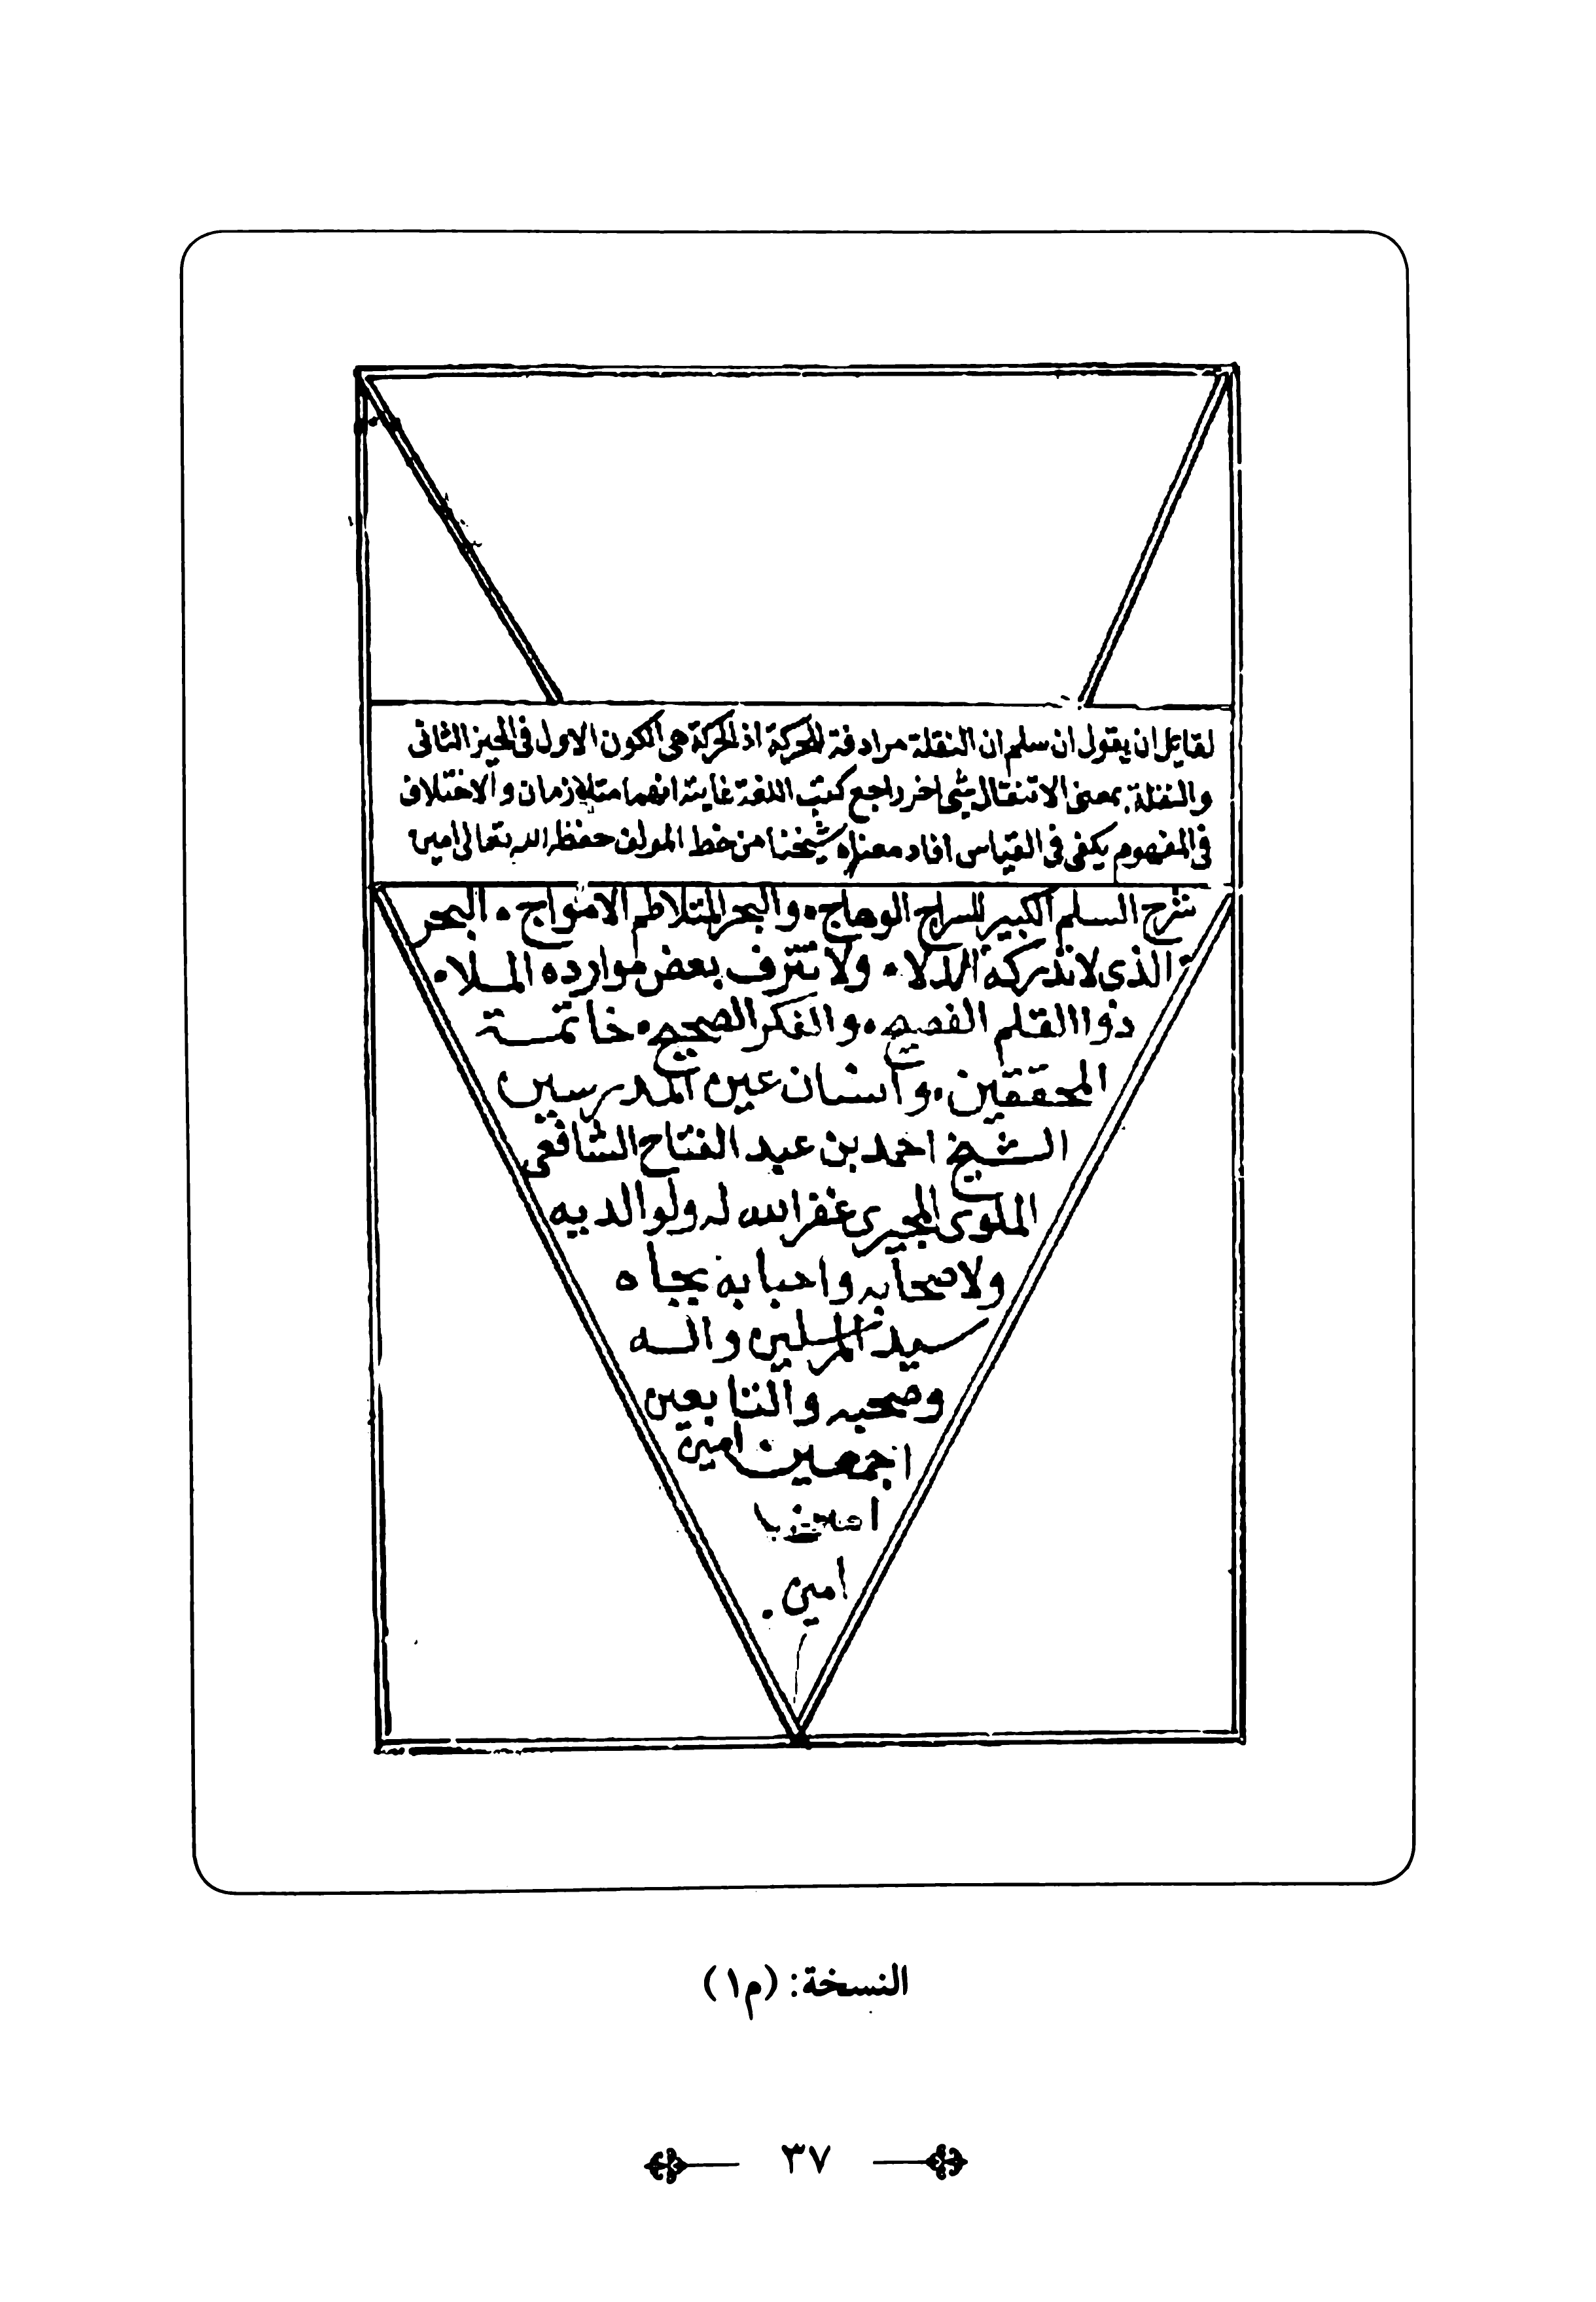 لقائل ان يقول ان سلم ان النقلة مرادفة للحركة اذ الحركة هي الكون الاول في الحيز الثاني
والنقلة بمعنى الانتقال شي اخر راجع كتب اللغة غايته انهما متلازمان والاختلاف
في المفهوم يكفي في القياس افاد معناه شيخنا من خط المولف حفظه الله تعالى امين
شرح السلم الكبير للسراج الوهاج، والبحر المتلاطم الامواج، البحر
الذى لا تدركه الدلاء، ولا تنزف بعض موارده الملاء،
ذو القلم الفصيح، والفكر الصحيح، خاتمة
المحققين، وانسان عين المدرسين
الشيخ احمد بن عبد الفتاح الشافعي
الملوى المجيرى غفر الله له ولوالديه
ولاصحابه واحبابه بجاه
سيد المرسلين واله
وصحبه والتابعين
اجمعين امين
امين
النسخة: (م١)
٣٧